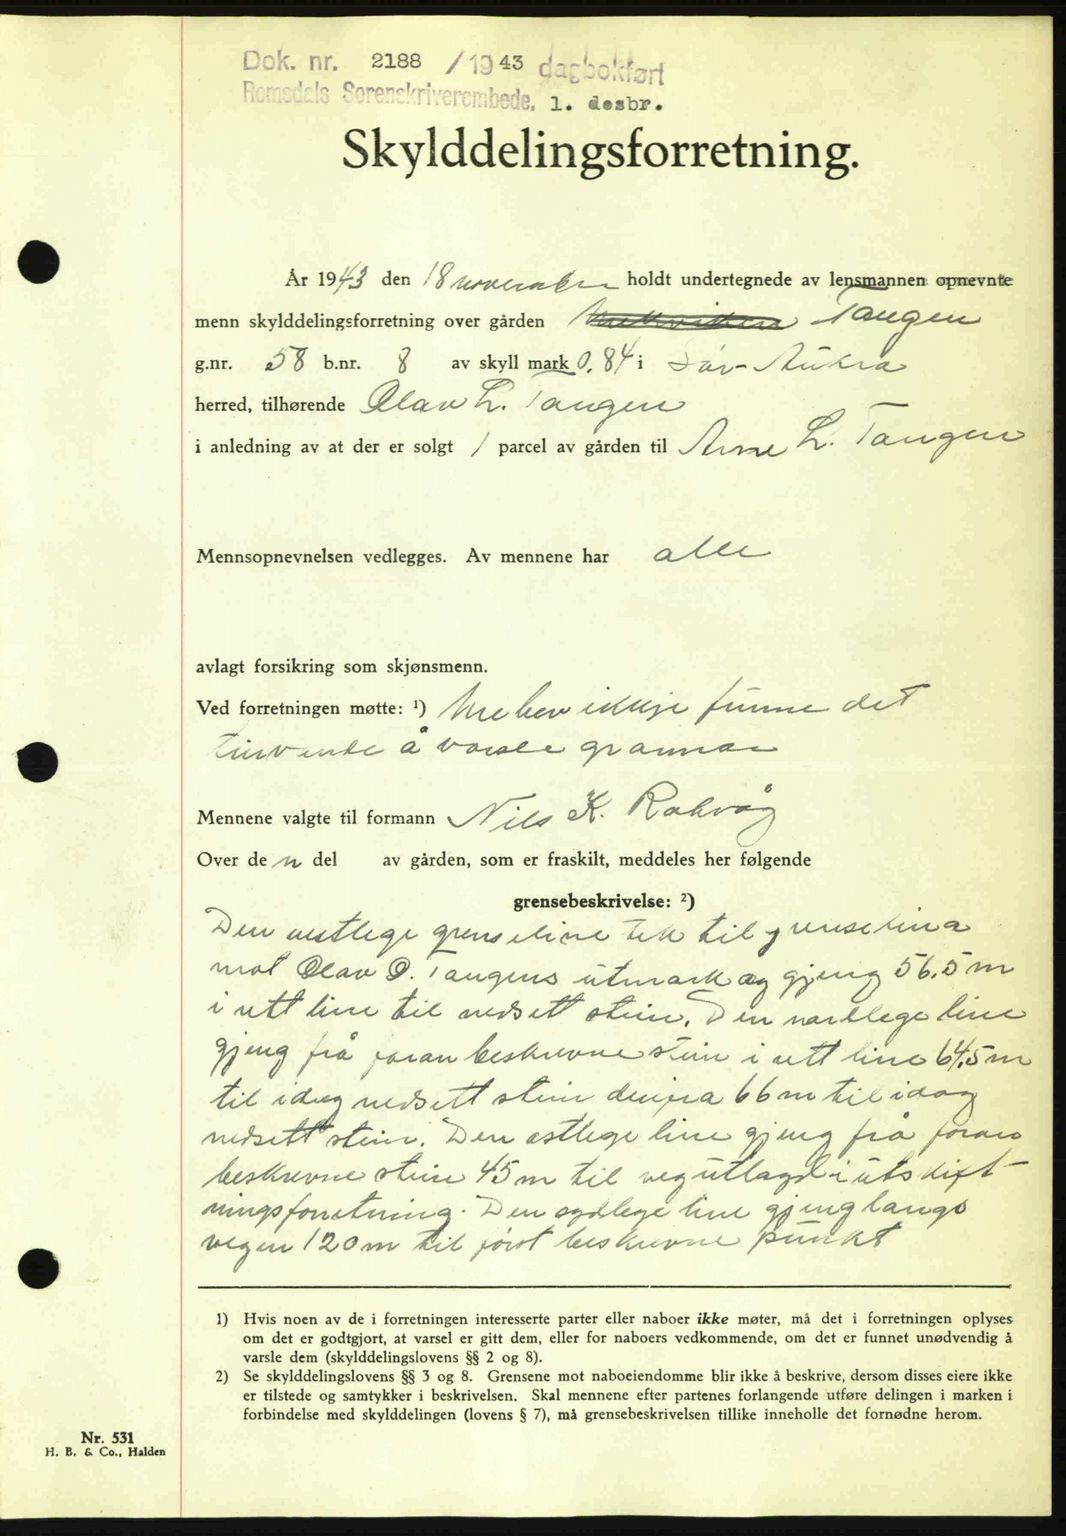 Dok. nr. 2188 / 1943 dagbokført
Romsdals Sorenskriverembede, 1. desbr.
Skylddelingsforretning.
År 1943 den 18 november holdt undertegnede av lensmannen opnevnte
menn skylddelingsforretning over gården Tangen
g.nr. 58 b.nr. 8 av skyll mark 0,84 i Sør-Aukra
herred, tilhørende Olav L. Tangen
i anledning av at der er solgt 1 parcel av gården til Arne L. Tangen
Mennsopnevnelsen vedlegges. Av mennene har alle
avlagt forsikring som skjønsmenn.
Ved forretningen møtte: ¹) ikkje funne det
å varsle grannar
Mennene valgte til formann Nils K. Rakvåg
Over de n del av gården, som er fraskilt, meddeles her følgende
grensebeskrivelse: ²)
Den vestlege grenseline tek til grenselina
mot Olav O. Tangens utmark og gjeng 56.5 m
i ett line til nedsett stein. Den nordlege line
gjeng frå foran beskrevne stein i ett line 64,5 m
til idag nedsett stein derifra 66 m til idag
nedsett stein. Den østlege line gjeng frå foran
beskrevne stein 45 m til veg utlagd i utskift-
ningsforretning. Den sydlege line gjeng langs
vegen 120 m til først beskrevne punkt
1) Hvis noen av de i forretningen interesserte parter eller naboer ikke møter, må det i forretningen oplyses
om det er godtgjort, at varsel er gitt dem, eller for naboers vedkommende, om det er funnet unødvendig å
varsle dem (skylddelingslovens §§ 2 og 8).
2) Se skylddelingslovens §§ 3 og 8. Grensene mot naboeiendomme blir ikke å beskrive, dersom disses eiere ikke
er tilstede og samtykker i beskrivelsen. Skal mennene efter partenes forlangende utføre delingen i marken i
forbindelse med skylddelingen (lovens § 7), må grensebeskrivelsen tillike inneholle det fornødne herom.
Nr. 531
H. B. & Co., Halden